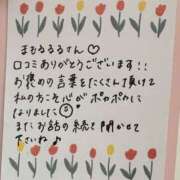 まおるるるさん♡
口コミありがとうございます!!
お褒めの言葉をたくさん頂けて
私の方こそ心がポカポカして
なりました
またお話の続き聞かせて
下さいね♪